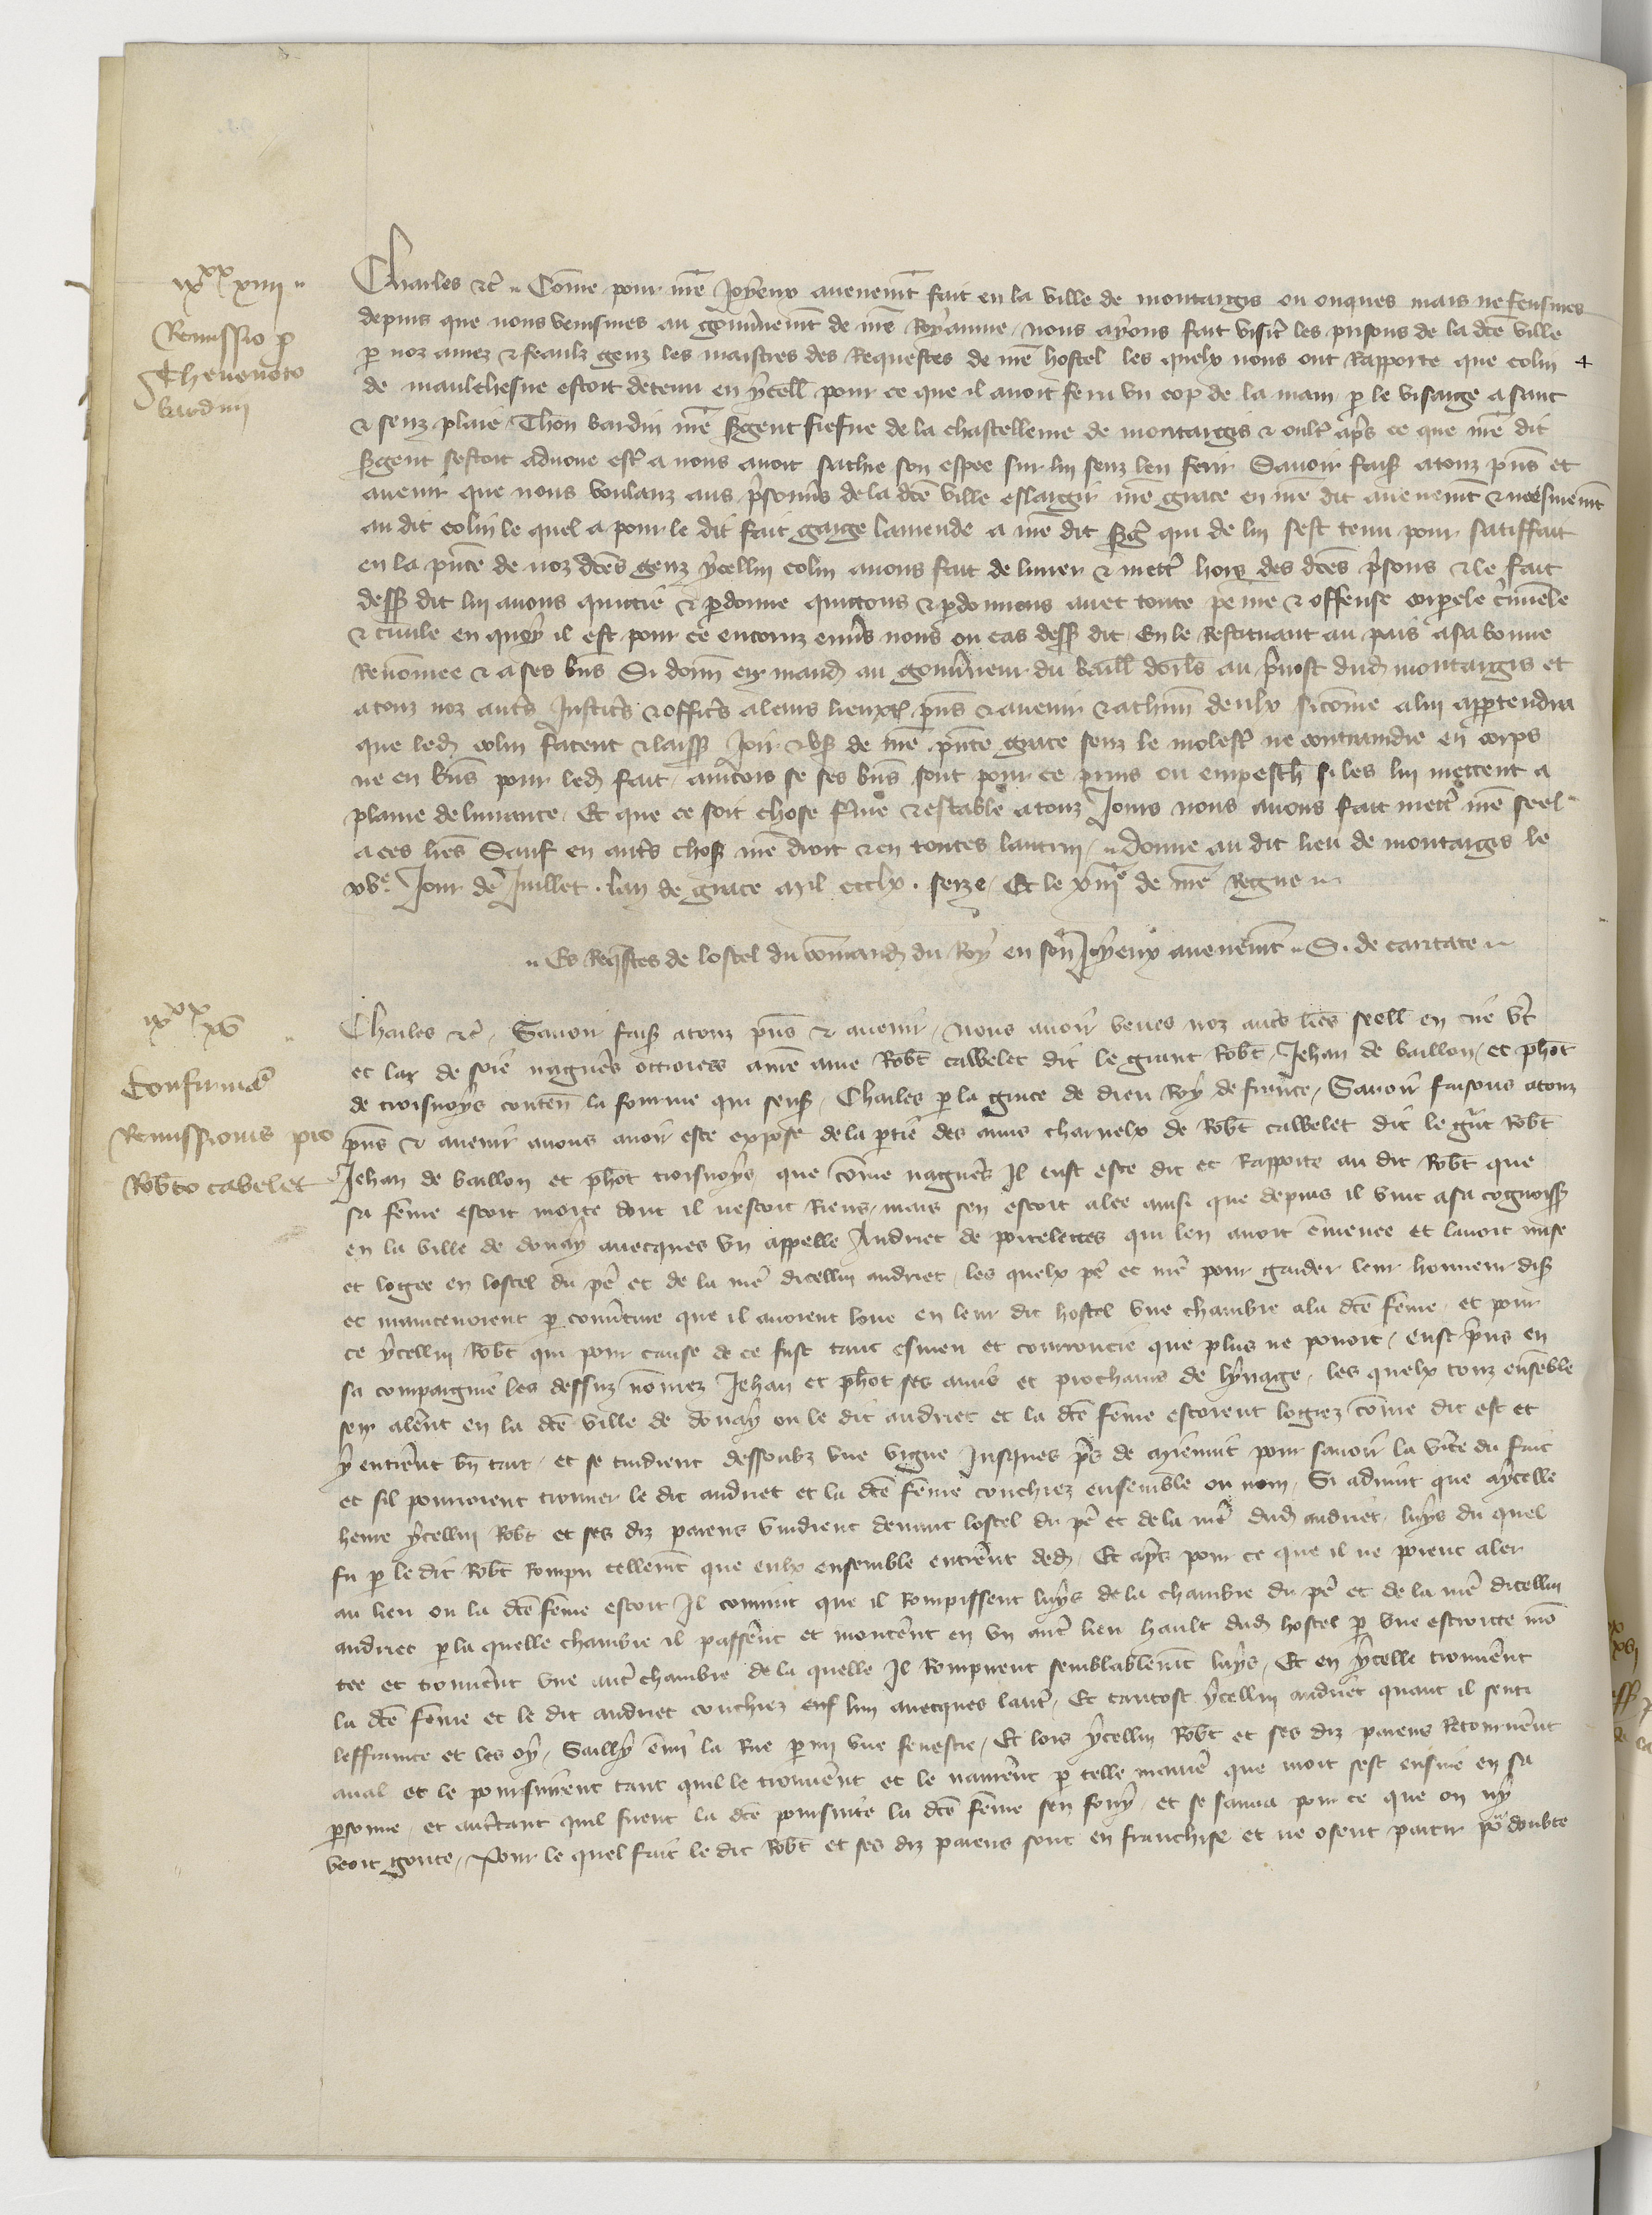 ix^xx xiiii
Remissio p
Thevenoto
bardin
Charles etc. Come pour nre joyeux avenemt fait en la ville de montargis ou onques mais ne feusmes
depuis que nous venismes au gouvnemt de nre Royaume, nous ayons fait visit les prisons de la dce ville
p noz amez et feaulx genz les maistres des Requestes de nre hostel les quelx nous ont Rapporte que colin +
de maulchesne estoit detenu en ycell pour ce que il avoit feru un cop de la main p le visaige a sanc
et senz plaie Thon bardin nre sgent fiefue de la chastellenie de montargis et oult aps ce que nre dit
sgent sestoit advoue est a nous avoit sachie son espee sur lui senz len ferir Savoir fais a touz pns et
avenir que nous voulanz aus prisonns de la dce ville eslargir nre grace en nre dit avenemt et mesmemt
au dit colin le quel a pour le dit fait gaige lamende a nre dit sgt qui de lui sest tenu pour satiffait
en la pnce de noz dces genz ycellui colin avons fait delivrer et mett hors des dces prisons et le fait
dess dit lui avons quictie et pdonne quictons et pdonnons avec toute peine et offense corpele crimele
et civile en quoy il est pour ce encouruz envs nous ou cas dess dit En le Restituant au pais a sa bonne
Renommee et a ses bns Si donn en mand au gouvneur du baill dorls au pvost dud montargis et
a touz noz auts Justics et offics a leurs lieux pns et avenir et a chun deulx sicome a lui apptendra
que led colin facent et laiss Joir et us de nre pnte grace senz le molest ne contraindre en corps
ne en bns pour led fait, aincois se ses bns sont pour ce prins ou empesch si les lui mettent a
plaine delivrance, Et que ce soit chose ferme et estable a touz Jours nous avons fait mett nre seel
a ces lres Sauf en auts chos nre droit et en toutes lautrui, donne au dit lieu de montargis le
xve Jour de Juillet lan de grace mil ccclx seize Et le xiiie de nre Regne
Es Reqstes de lostel du comand du Roy en son Joyeux avenemt S. de caritate
ix^xx xv
Confirmac
Remissionis pro
Robto cavelet
Charles etc. Savoir fais a touz pns et avenir, nous avoir veues noz auts lres seell en cire vt
et laz de soie nagues ottroiees a nre ame Robt cawelet dit le grant Robt, Jehan de baillon, et phot
de troisnoys conten la fourme qui sens, Charles p la grace de dieu Roy de france, Savoir faisons a touz
pns et avenir avons avoir este expose de la ptie des amis charnelx de Robt cawelet dit le grat Robt
Jehan de baillon et phot troisnoys, que come nagues Il eust este dit et Rapporte au dit Robt que
sa feme estoit morte dont il nestoit Riens, mais sen estoit alee ainsi que depuis il vint a sa cognoiss
en la ville de douay avecques un appelle Andriet de porcelettes qui len avoit emenee et lavoit mise
et logee en lostel du pe et de la me dicellui andriet, les quelx pe et me pour garder leur honneur dis
et maintenoient p couvture que il avoient loue en leur dit hostel une chambre a la dce feme, et pour
ce ycellui Robt qui pour cause de ce fust tant esmeu et courroucie que plus ne povoit, eust prins en
sa compaignie les dessuz nomez Jehan et phot ses amis et prochains de lynage, les quelx touz ensemble
sen alerent en la dce ville de douay ou le dit andriet et la dce feme estoient logiez come dit est et
y entrerent bn tart, et se tindrent dessoubz une vigne Jusques ps de mienuit pour savoir la vite du fait
et sil pourroient trouver le dit andriet et la dce feme couchiez ensemble ou non, Si advint que a ycelle
heure ycellui Robt et ses diz parens vindrent devant lostel du pe et de la me dud andriet, luys du quel
fu p le dit Robt Rompu tellemt que eulx ensemble entrerent ded, Et aps pour ce que il ne porent aler
au lieu ou la dce feme estoit Il convint que il Rompissent luys de la chambre du pe et de la me dicellui
andriet p la quelle chambre il passerent et monterent en un aut lieu hault dud hostel p une estroitte mo
tee et trouverent une aut chambre de la quelle Il Rompirent semblablemt luys, Et en ycelle trouverent
la dce feme et le dit andriet couchiez nuz lun avecques laut, Et tantost ycellui andriet quant il senti
leffrainte et les oy, Sailly emi la Rue pmi une fenestre, Et lors ycellui Robt et ses diz parens Retournerent
aval et le poursuirent tant quil le trouverent et le navrerent p telle manie que mort sest ensuie en sa
psonne, et autretant quil firent la dce poursuite la dce feme sen fouy, et se sauva pour ce que on ny
veoit goute, Pour le quel fait le dit Robt et ses diz parens sont en franchise et ne osent partir po doubte